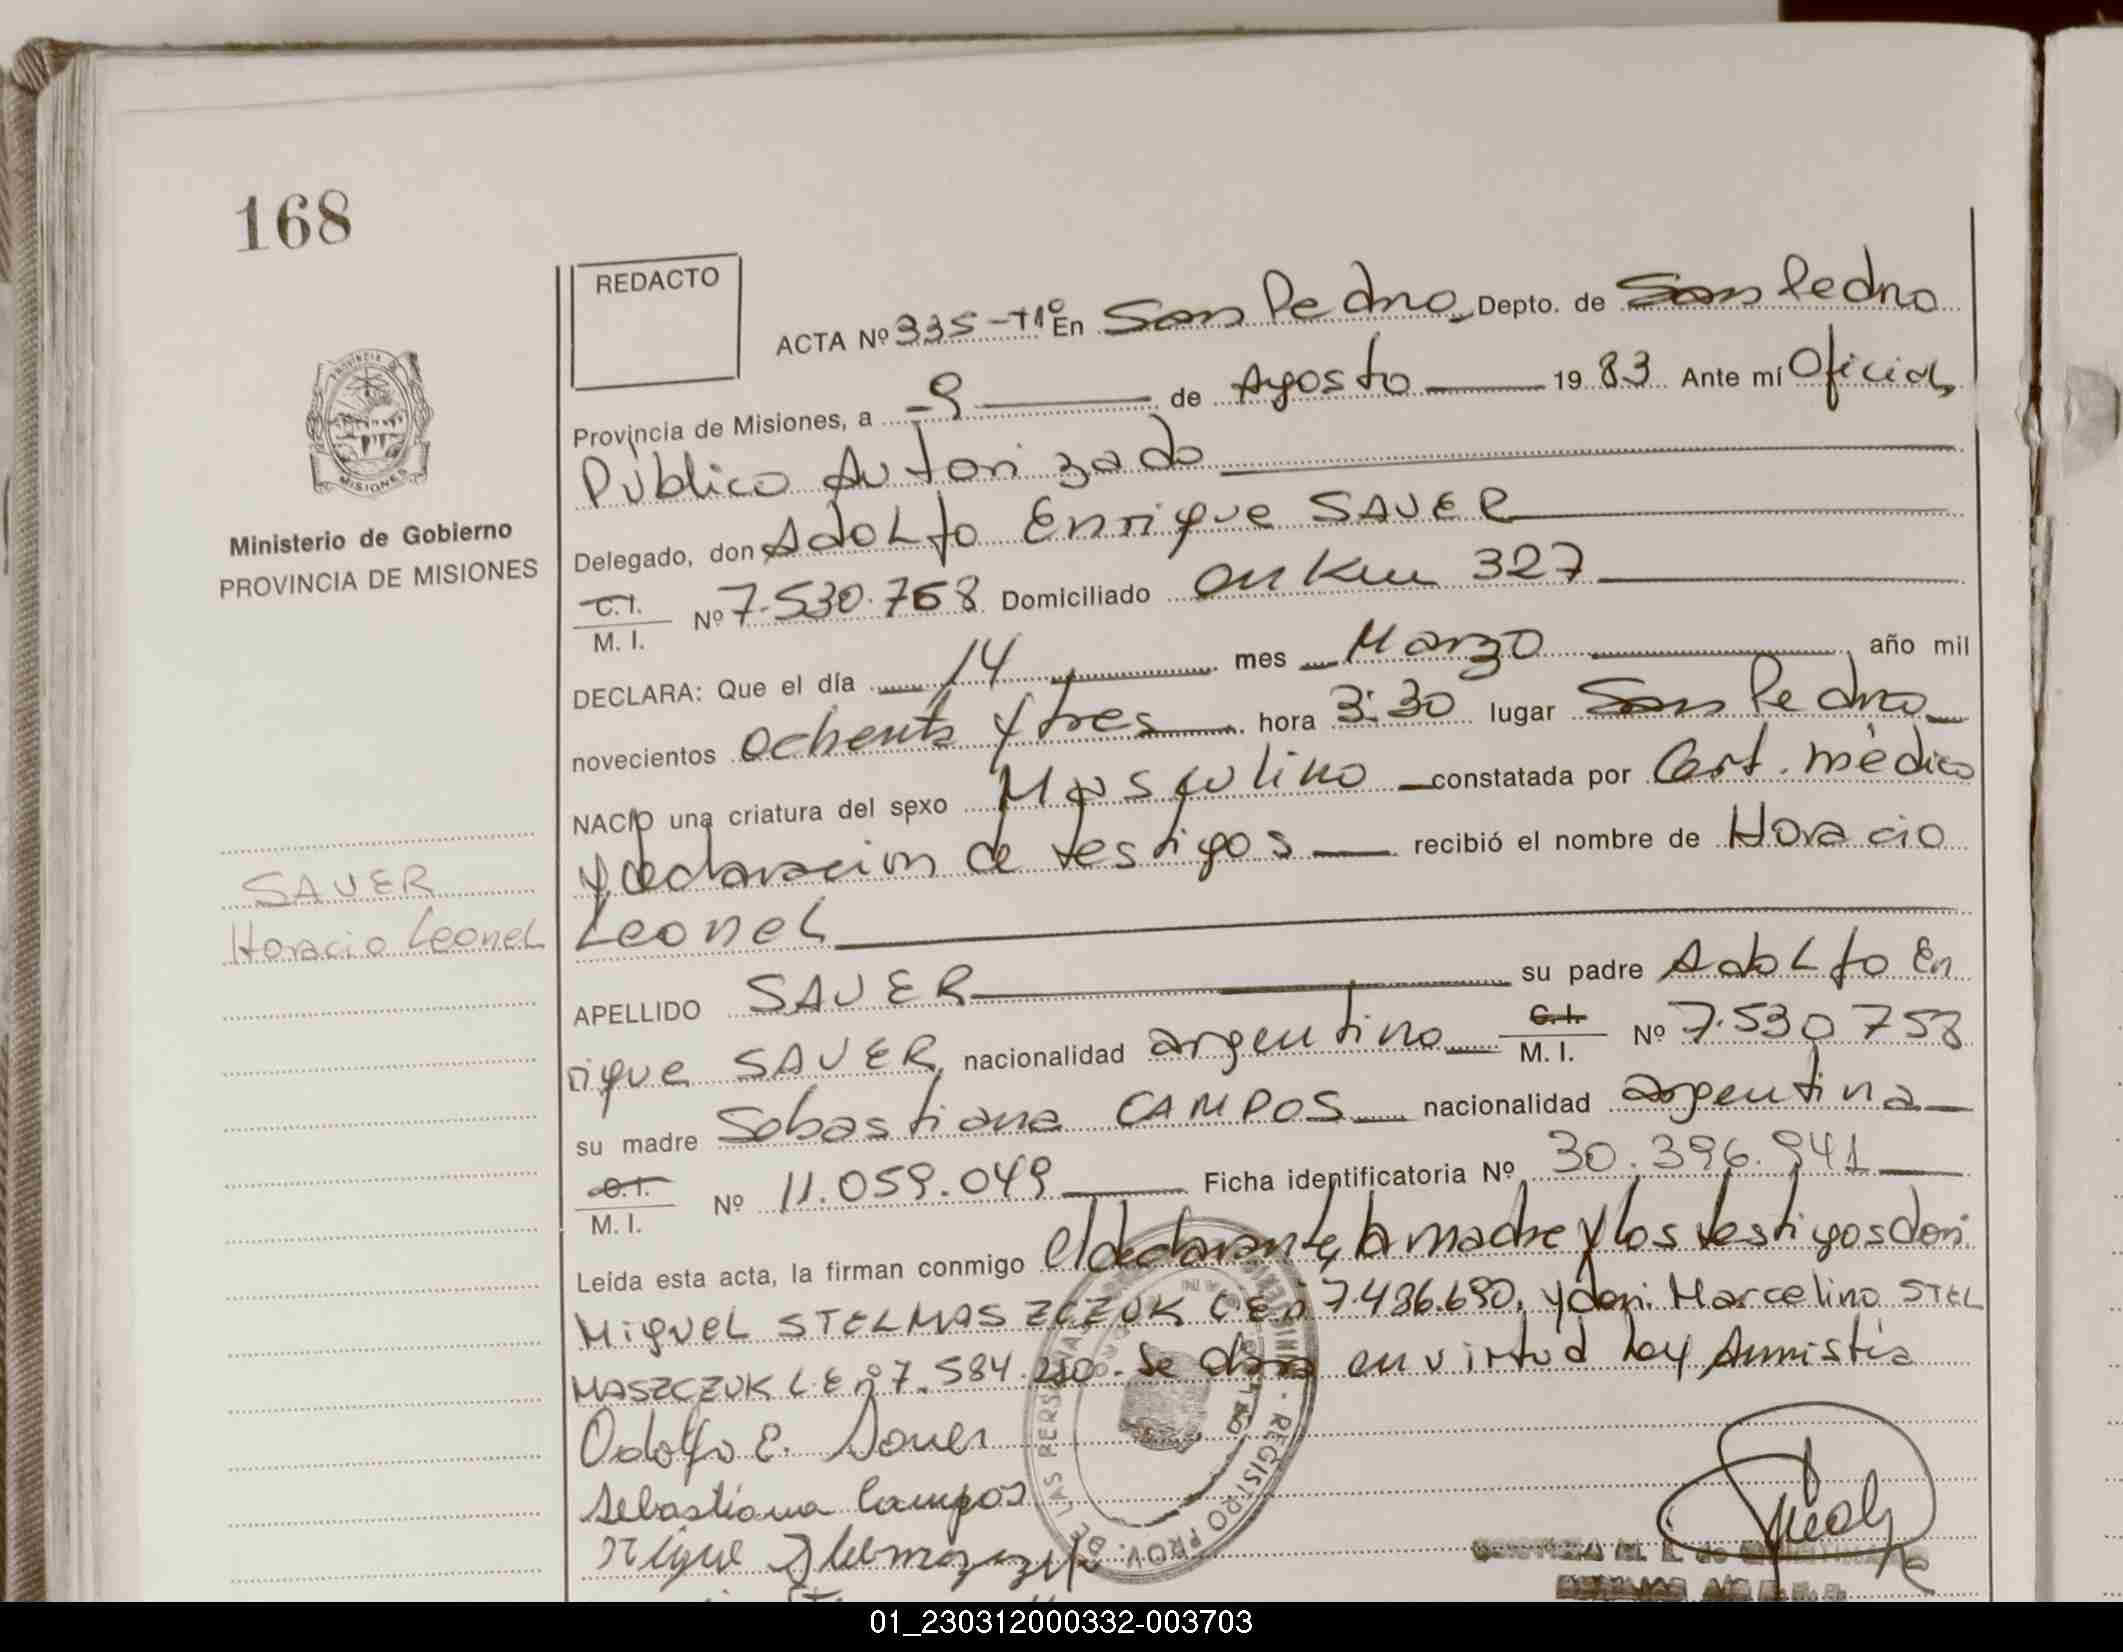 168
REDACTO
ACTA Nº 335-Tº1º En San Pedro Depto. de San Pedro
Provincia de Misiones, a -9 de Agosto 19 83 Ante mí Oficial
Público Autorizado
PROVINCIA
MISIONES
Ministerio de Gobierno
PROVINCIA DE MISIONES
Delegado, don Adolfo Enrique SAUER
C.I.
M. I. Nº 7.530.758 Domiciliado en Km 327
DECLARA: Que el día 14 mes Marzo año mil
novecientos ochenta y tres hora 3:30 lugar San Pedro
NACIO una criatura del sexo Masculino constatada por Cert. médico
y declaracion de testigos recibió el nombre de Horacio
Leonel
SAUER
Horacio Leonel
APELLIDO SAUER su padre Adolfo En
rique SAUER nacionalidad argentino C.I. M. I. Nº 7.530 758
su madre Sebastiana CAMPOS nacionalidad argentina
C.I.
M. I. Nº 11.059.049 Ficha identificatoria Nº 30.396.941
Leída esta acta, la firman conmigo el declarante, la madre y los testigos don:
Miguel STELMASZCZUK L E nº 7.486.690, y don: Marcelino STEL
MASZCZUK L E nº 7.584.210. Se labra en virtud Ley Amnistía
Adolfo E. Sauer
Sebastiana Campos
REGISTRO PROV. DE LAS PERSONAS
01_230312000332-003703